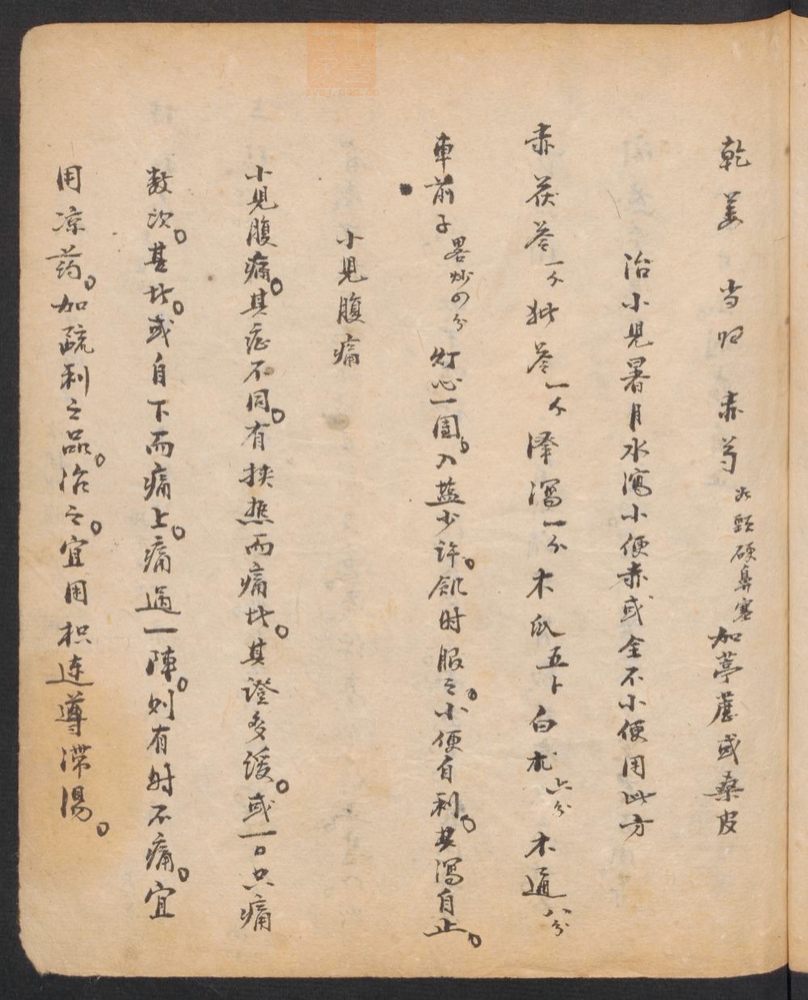 乾姜 当归 赤芍 火頸硬鼻塞 加葶藶或桑皮
治小児暑月水瀉小便赤或全不小便用此方
赤茯苓一分 猪苓一分 澤瀉一分 木瓜五卜 白朮六分 木通八分
車前子畧炒四分 灯心一團。入盐少許。飢时服之。小便自利。其瀉自止。
小児腹痛
小児腹痛。其症不同。有挟热而痛者。其證多緩。或一日只痛
数次。甚者。或自下而痛上。痛過一陣。則有时不痛。宜
用凉药。加疏利之品。治之。宜用枳連導滞湯。